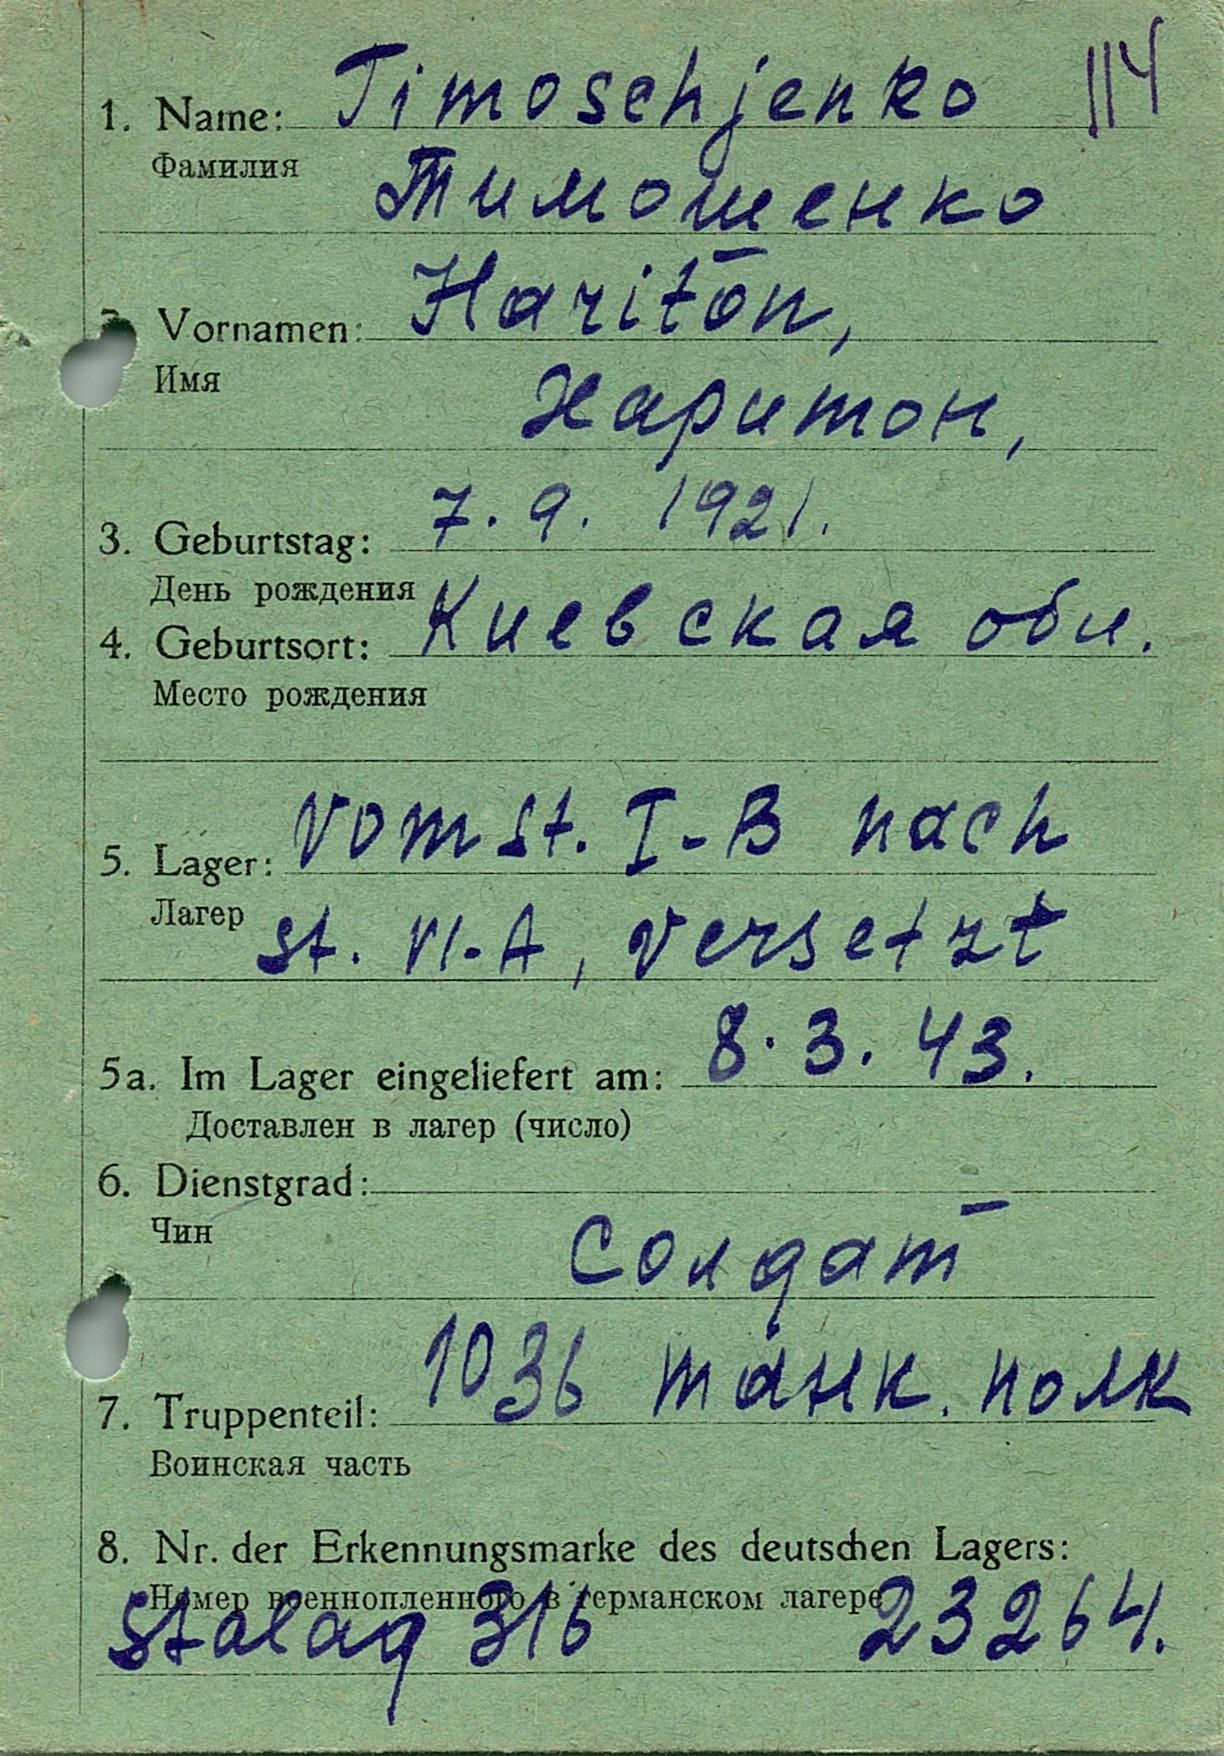 1. Name: Timoschjenko 114
Фамилия
Тимошенко
Vornamen: Hariton,
Имя
Харитон,
3. Geburtstag: 7. 9. 1921.
День рождения
4. Geburtsort: Киевская обл.
Место рождения
5. Lager: Vom St. I-B nach
Лагер
St. VI-A, versetzt
5a. Im Lager eingeliefert am: 8. 3. 43.
Доставлен в лагер (число)
6. Dienstgrad:
Чин
Солдат
7. Truppenteil: 1036 танк. полк
Воинская часть
8. Nr. der Erkennungsmarke des deutschen Lagers:
Номер военнопленного в германском лагере
Stalag 316 23264.